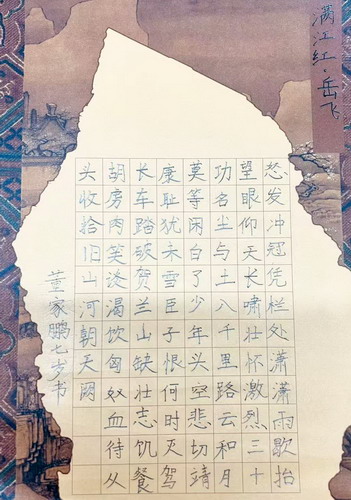 满江红·岳飞
怒发冲冠凭栏处潇潇雨歇抬
望眼仰天长啸壮怀激烈三十
功名尘与土八千里路云和月
莫等闲白了少年头空悲切靖
康耻犹未雪臣子恨何时灭驾
长车踏破贺兰山缺壮志饥餐
胡房肉笑谈渴饮匈奴血待从
头收拾旧山河朝天阙
董家鹏七岁书